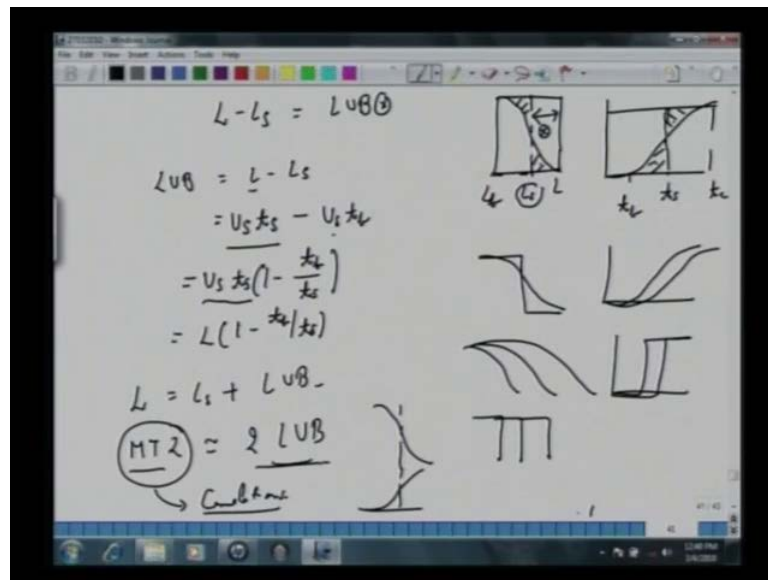 File Edit View Insert Actions Tools Help
L - Ls = LUB⊗
LUB = L - Ls
= Us ts - Us tb
= Us ts (1 - tb/ts)
= L (1 - tb/ts)
L = Ls + LUB
MTZ ≃ 2 LUB
⊗
Ls L
tb ts
12:40 PM